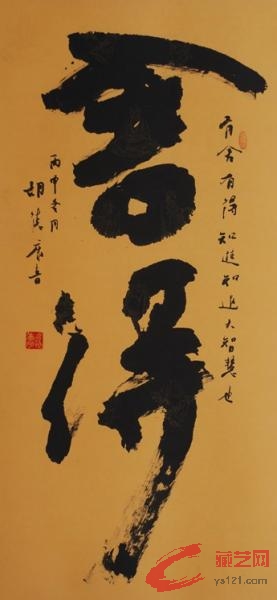 有舍有得知進知退大智慧也
舍得
丙申冬月
胡
藏艺网
ya121.com